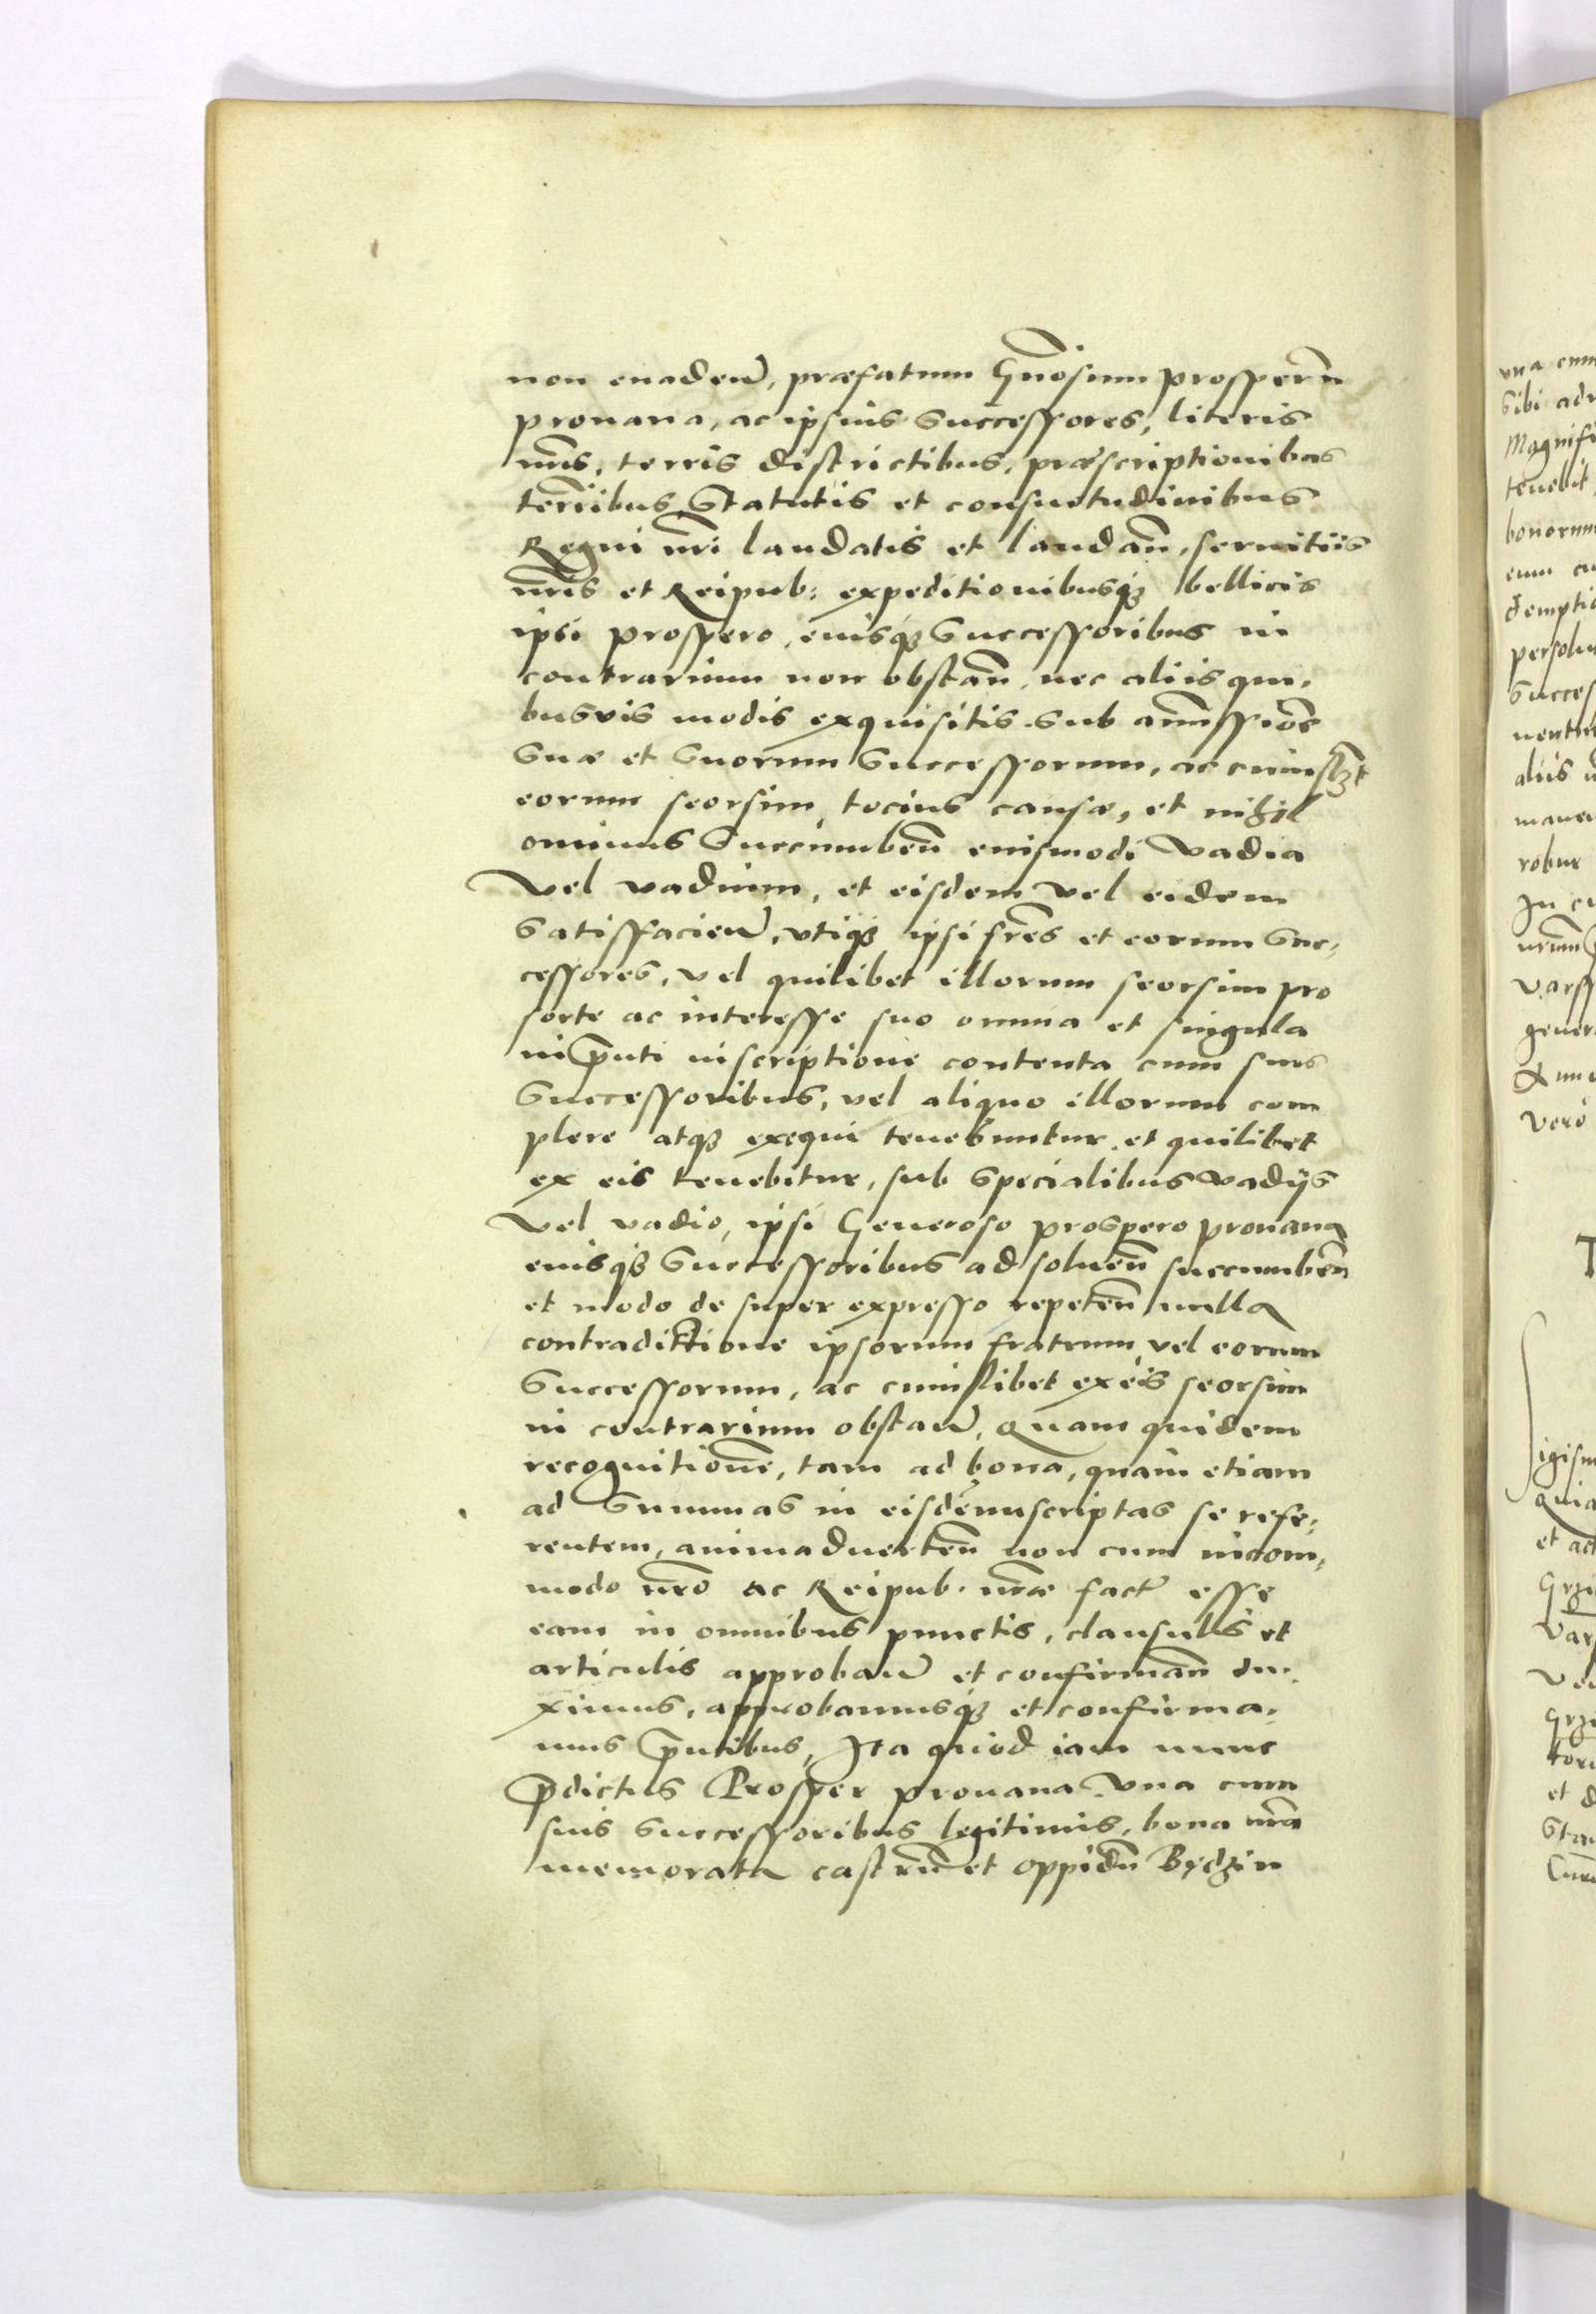 non euadeñ, præfatum Gñosum prosperũ
prouana, ac ipsius Successores, literis
nr̃is, terris districtibus, præscriptionibus
terr̃ibus, Statutis et consuetudinibus
Regni nr̃i laudatis et laudañ, seruitiis
nr̃is et Reipub: expeditionibusq3 bellicis
ipsi prospero, eiusq3 Successoribus in
contrarium non obstañ, nec aliis qui,
busvis modis exquisitis. sub amissiõe
Suæ et Suorum Successorum, ac cuiuslȝt
eorum seorsim, tocius causæ, et nihil
ominus Succumbeñ eiusmodi vadia
vel vadium, et eisdem vel eidem
Satisfacieñ, vtiq3 ipsi fr̃es et eorum Suc,
cessores, vel quilibet illorum seorsim pro
sorte ac interesse suo omnia et singula
in p̃nti inscriptione contenta cum suis
Successoribus, vel aliquo illorum com
plere atq3 exequi tenebuntur, et quilibet
ex eis tenebitur, sub Specialibus vadijs
vel vadio, ipsi Generoso prospero prouana
eiusq3 Successoribus ad soluen̄ succumbeñ
et modo de super expresso repeteñ nulla
contradiktione ipsorum fratrum vel eorum
Successorum, ac cuiuslibet ex eis seorsim
in contrarium obstañ, Quam quidem
recognitionẽ, tam ad bona, quam etiam
ad Summas in eisdẽ inscriptas se refe,
rentem, animaduerteñ non cum incom,
modo nr̃o ac Reipub. nr̃æ factũ esse
eam in omnibus punctis, clausulis et
articulis approbañ et confirmañ du,
ximus, approbamusq3 et confirma,
mus p̃ntibus, Ita quod iam nunc
p̃dictus Prosper prouana vna cum
suis Successoribus legitimis, bona nr̃a
memorata castrũ et oppidũ Bydzin
vna cum
Sibi
Magnifi
tenebit
bonorum
eum
persolu
Succes
aliis
robur
vars
gener
vero
et